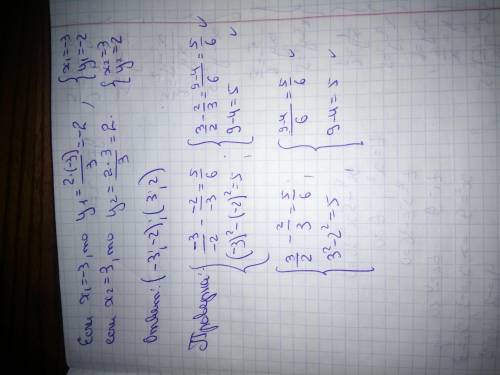 Если x₁=-3, то y₁ = 2·(-3)/3 = -2 , { x₁=-3 y₁=-2
если x₂=3, то y₂ = 2·3/3 = 2. { x₂=3 y₂=2
Ответ: (-3;-2);(3;2)
Проверка: { -3/-2 - -2/-3 = 5/6 (-3)²-(-2)²=5 ; { 3/2 - 2/3 = 9-4/6 = 5/6 ✓ 9-4=5 ✓
{ 3/2 - 2/3 = 5/6 3²-2²=5 ; { 9-4/6 = 5/6 ✓ 9-4=5 ✓